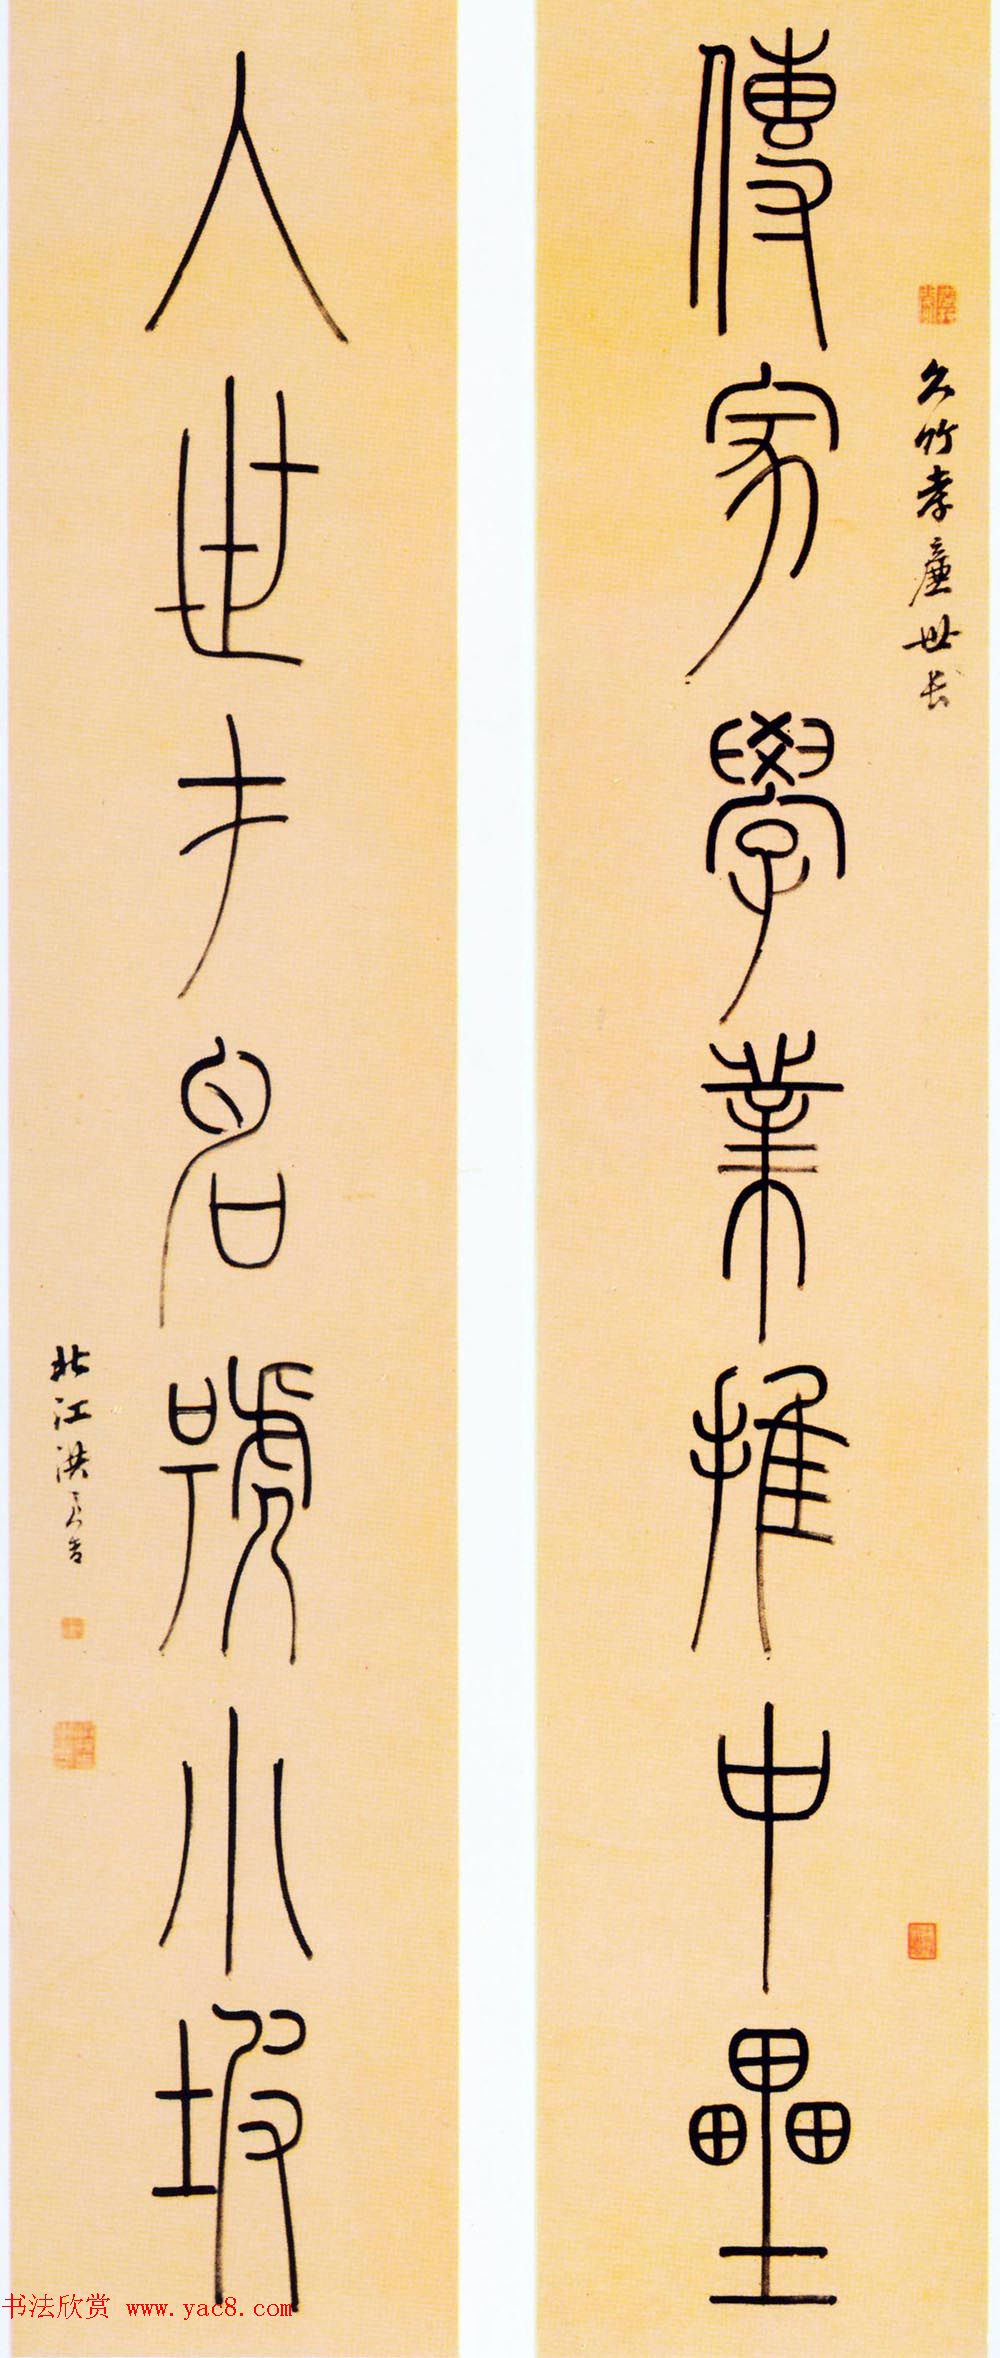 久竹孝廉世長
傳家學業推中壘
入世才名號小坡
北江洪亮吉
书法欣赏 www.yac8.com